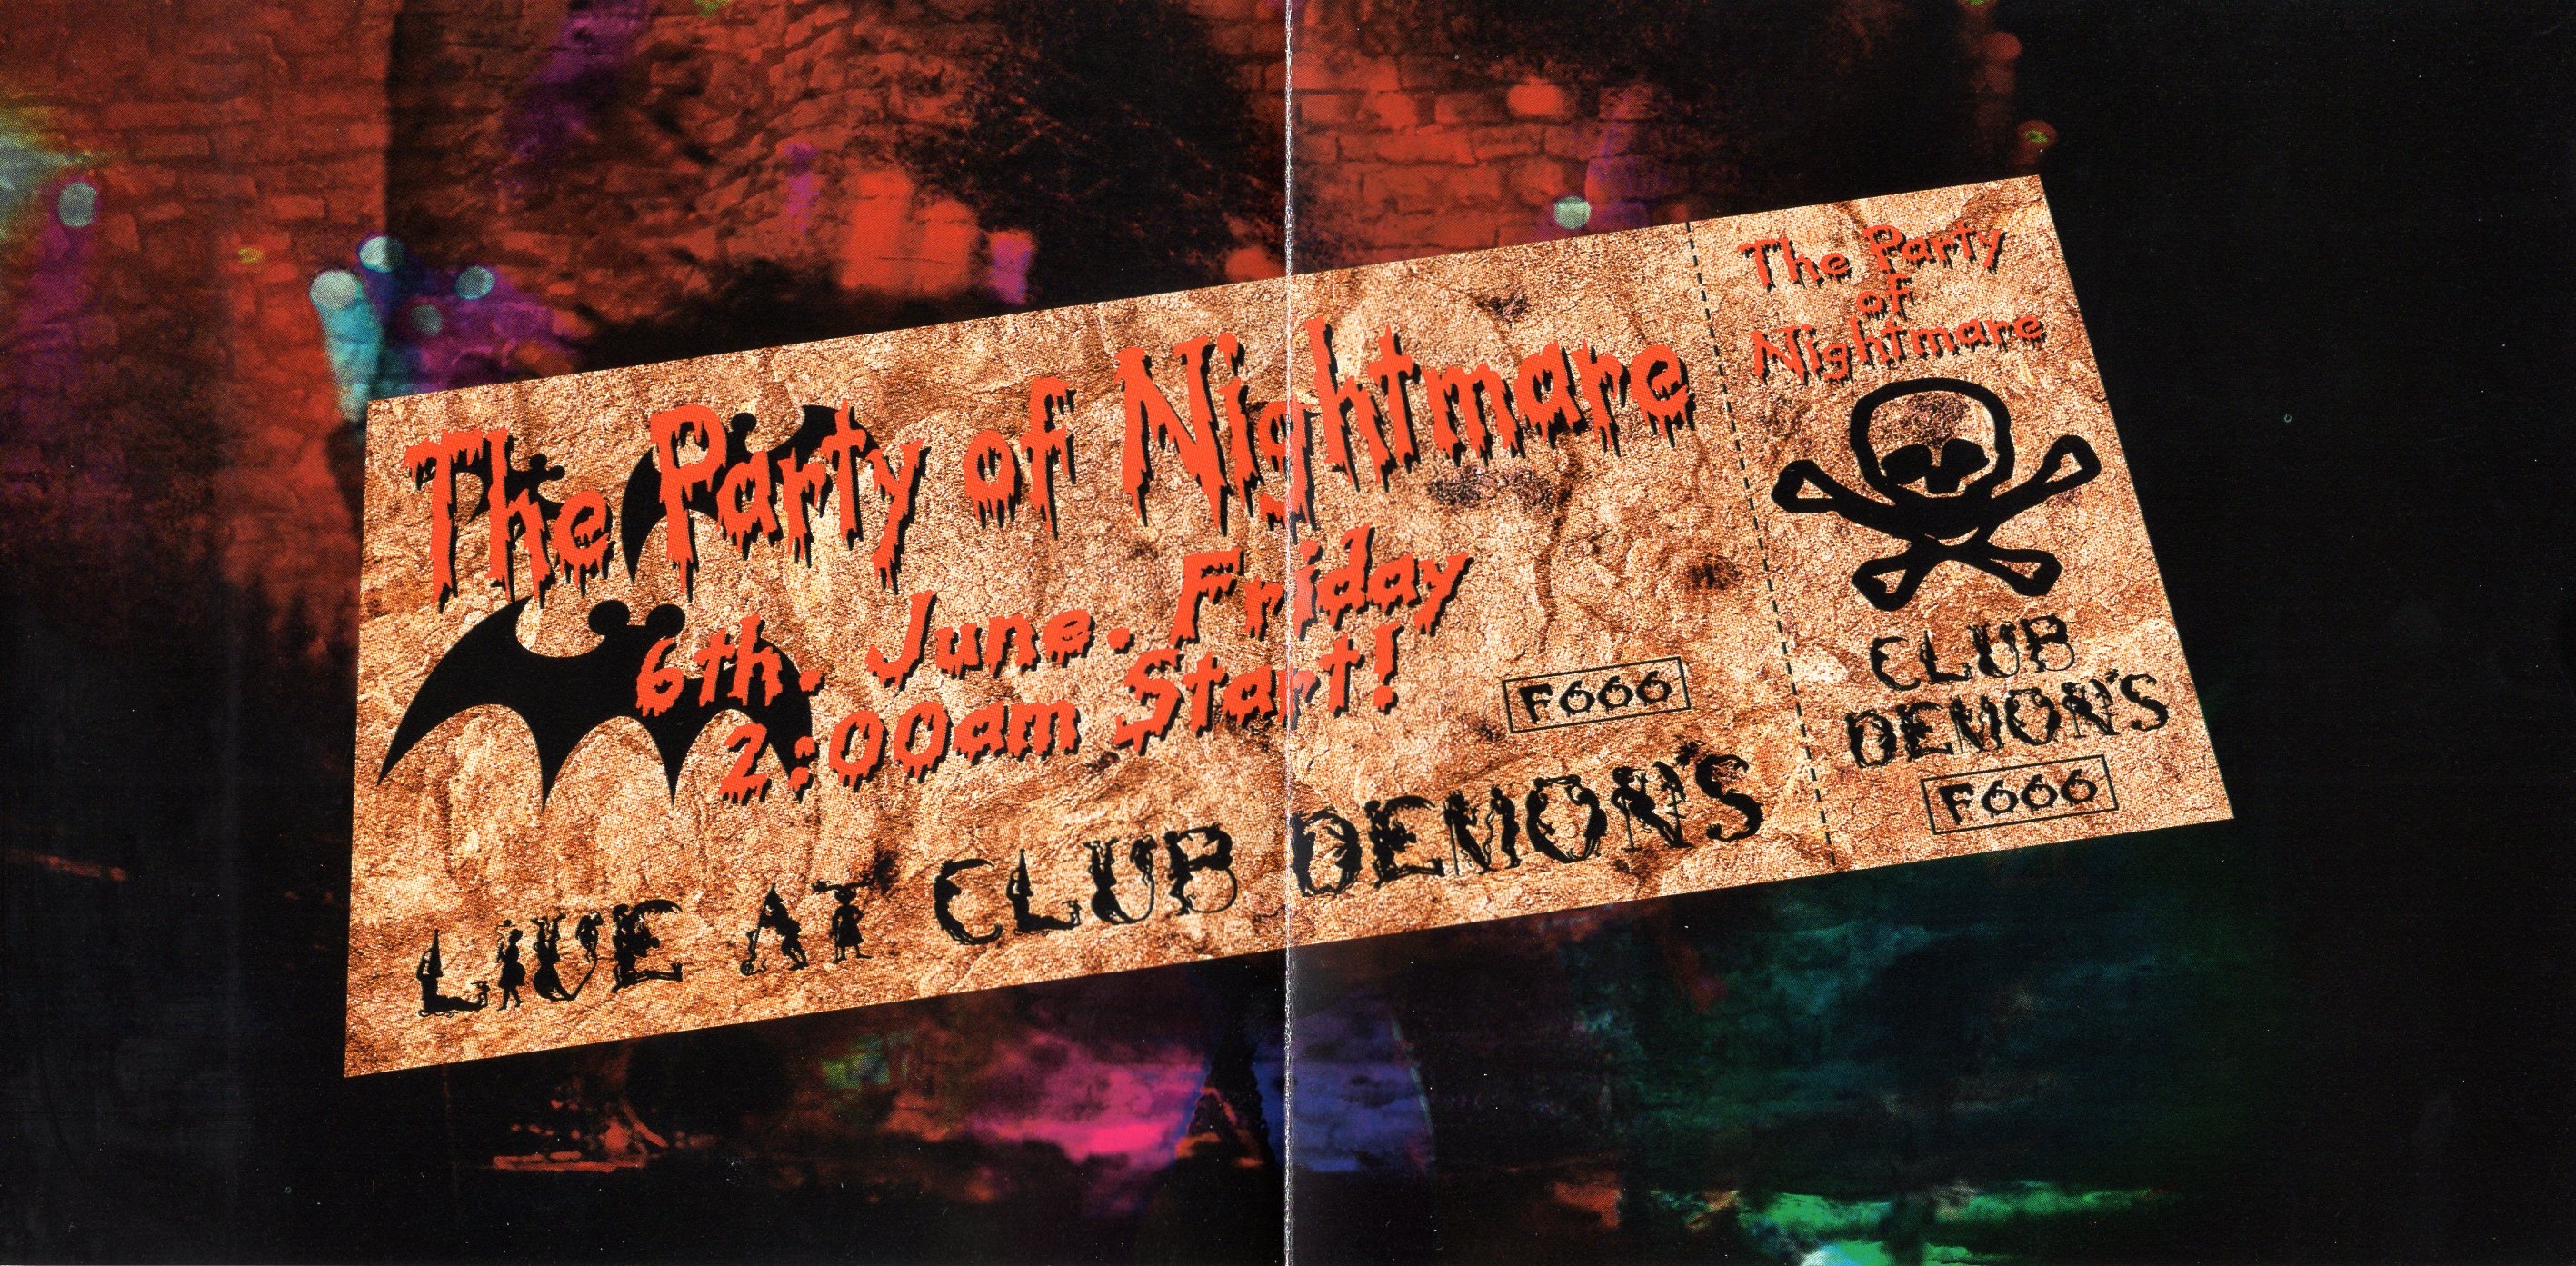 The Party of Nightmare
6th. June. Friday
2:00am Start!
F666
LIVE AT CLUB DEMON'S
The Party
of
Nightmare
CLUB
DEMON'S
F666